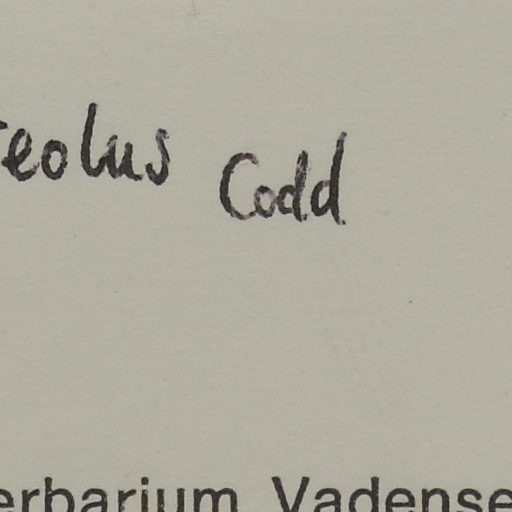 eolus Codd
erbarium Vadense